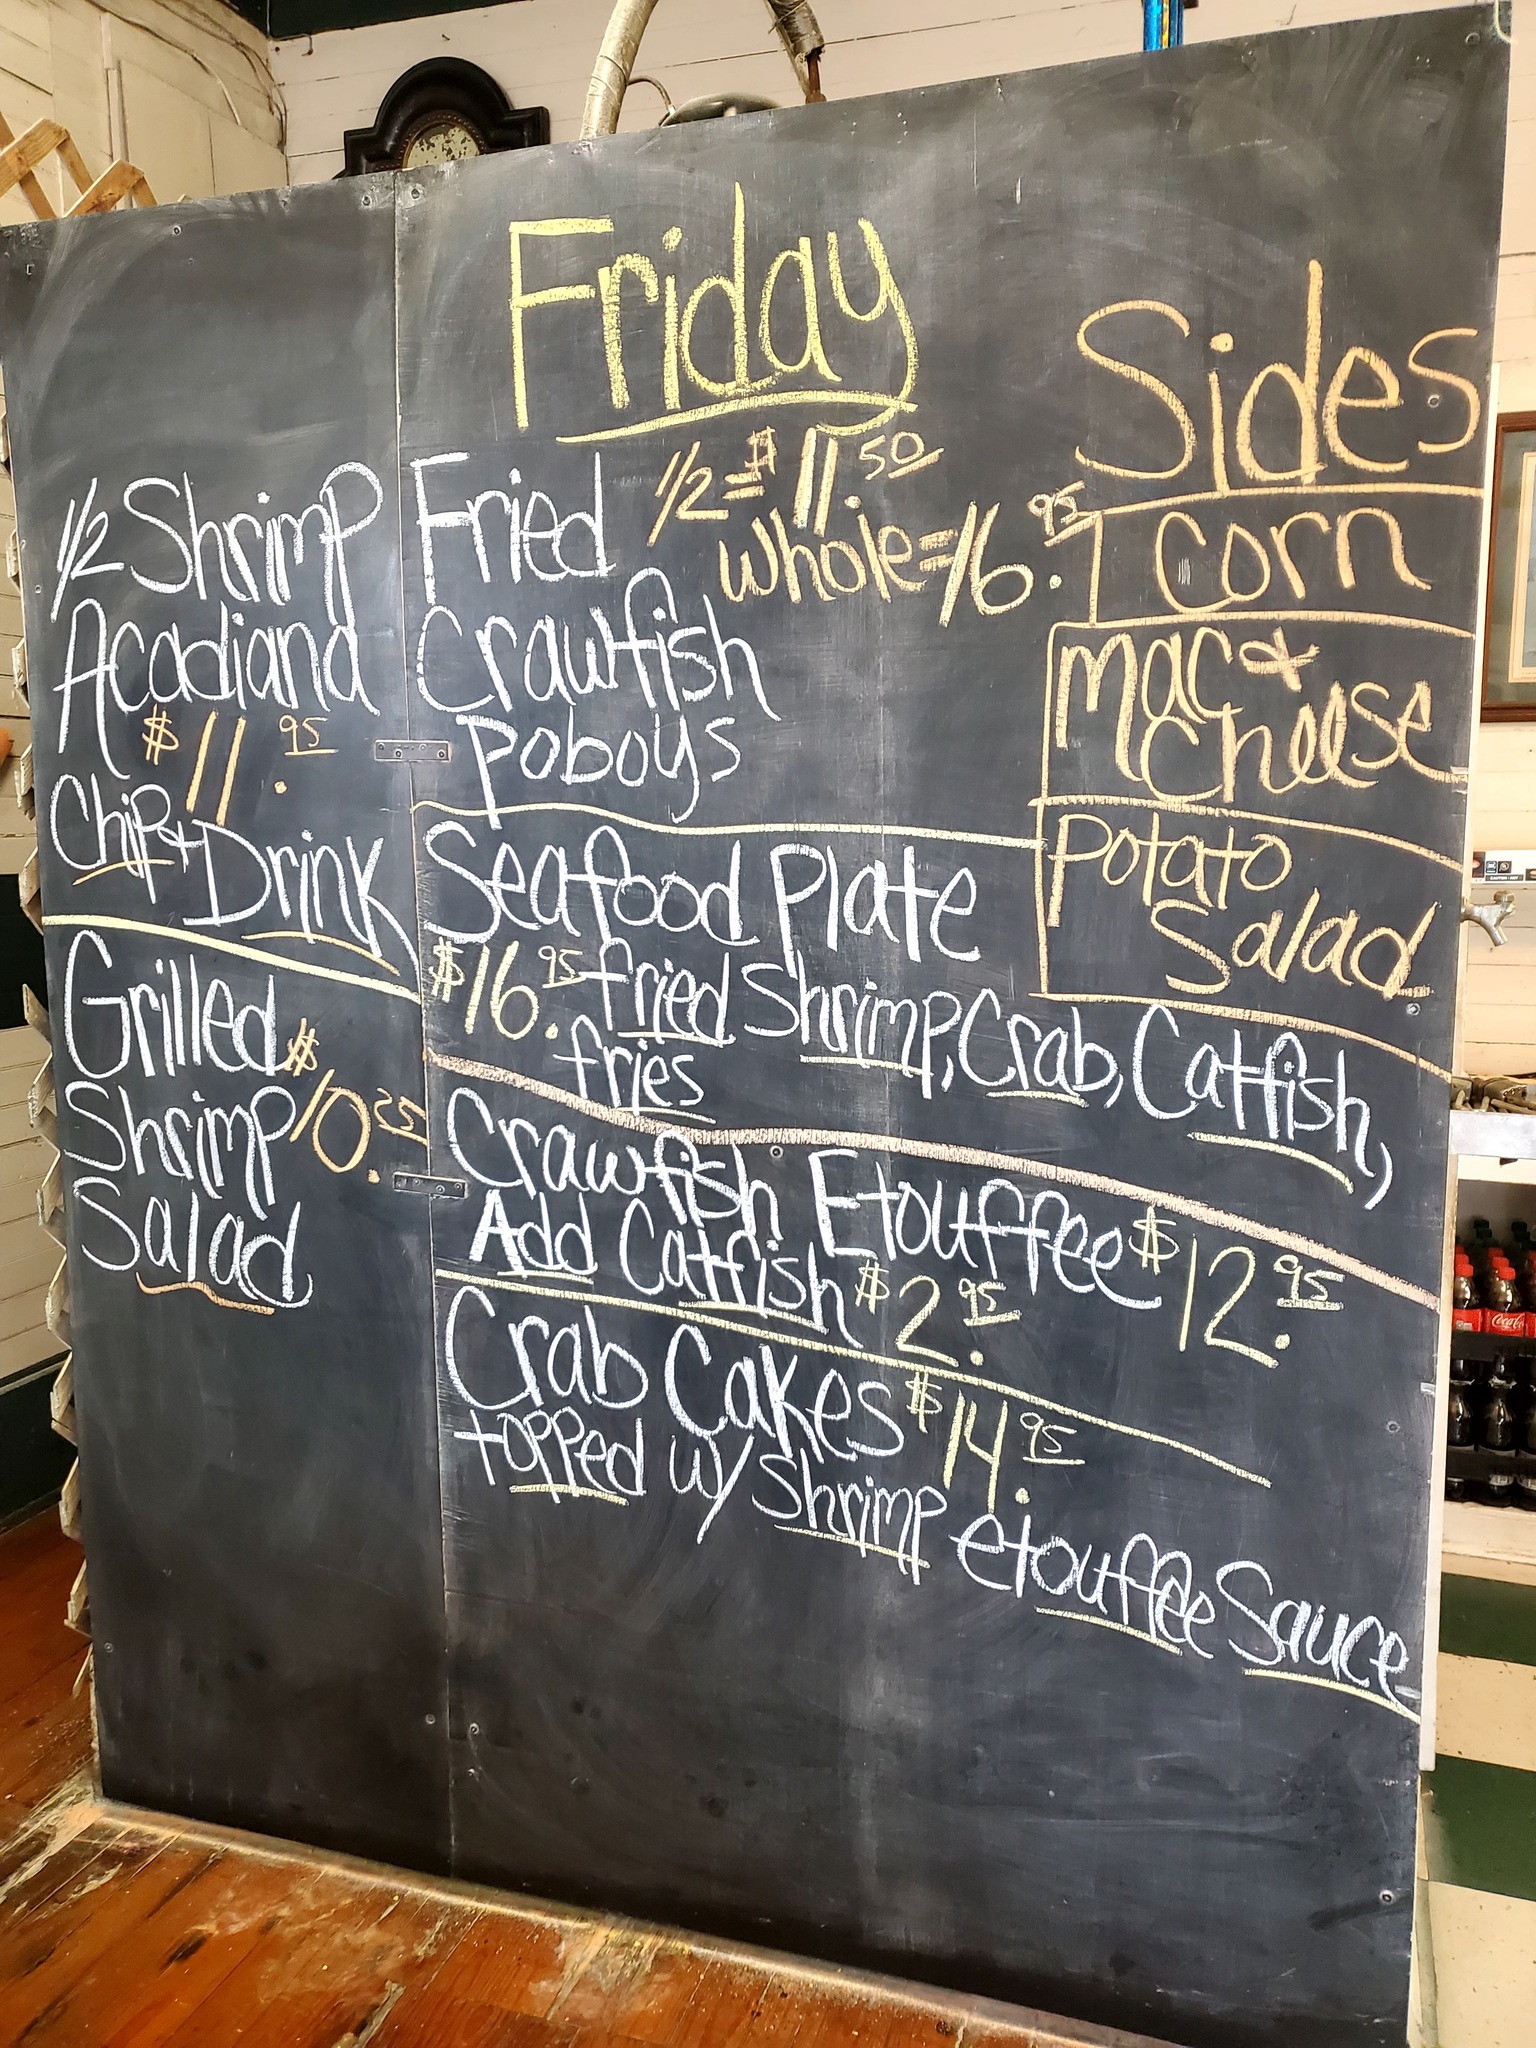 Friday
1/2 Shrimp
Acadiana
$11.95
Chip + Drink
Grilled
Shrimp $10.25
Salad
Fried 1/2 = $11.50
whole = 16.95
Crawfish
poboys
Seafood Plate
$16.95 fried Shrimp, Crab, Catfish,
fries
Crawfish Etouffee $12.95
Add Catfish $2.95
Crab Cakes $14.95
topped w/ Shrimp etouffee Sauce
Sides
Corn
Mac &
Cheese
Potato
Salad
Coca-Cola